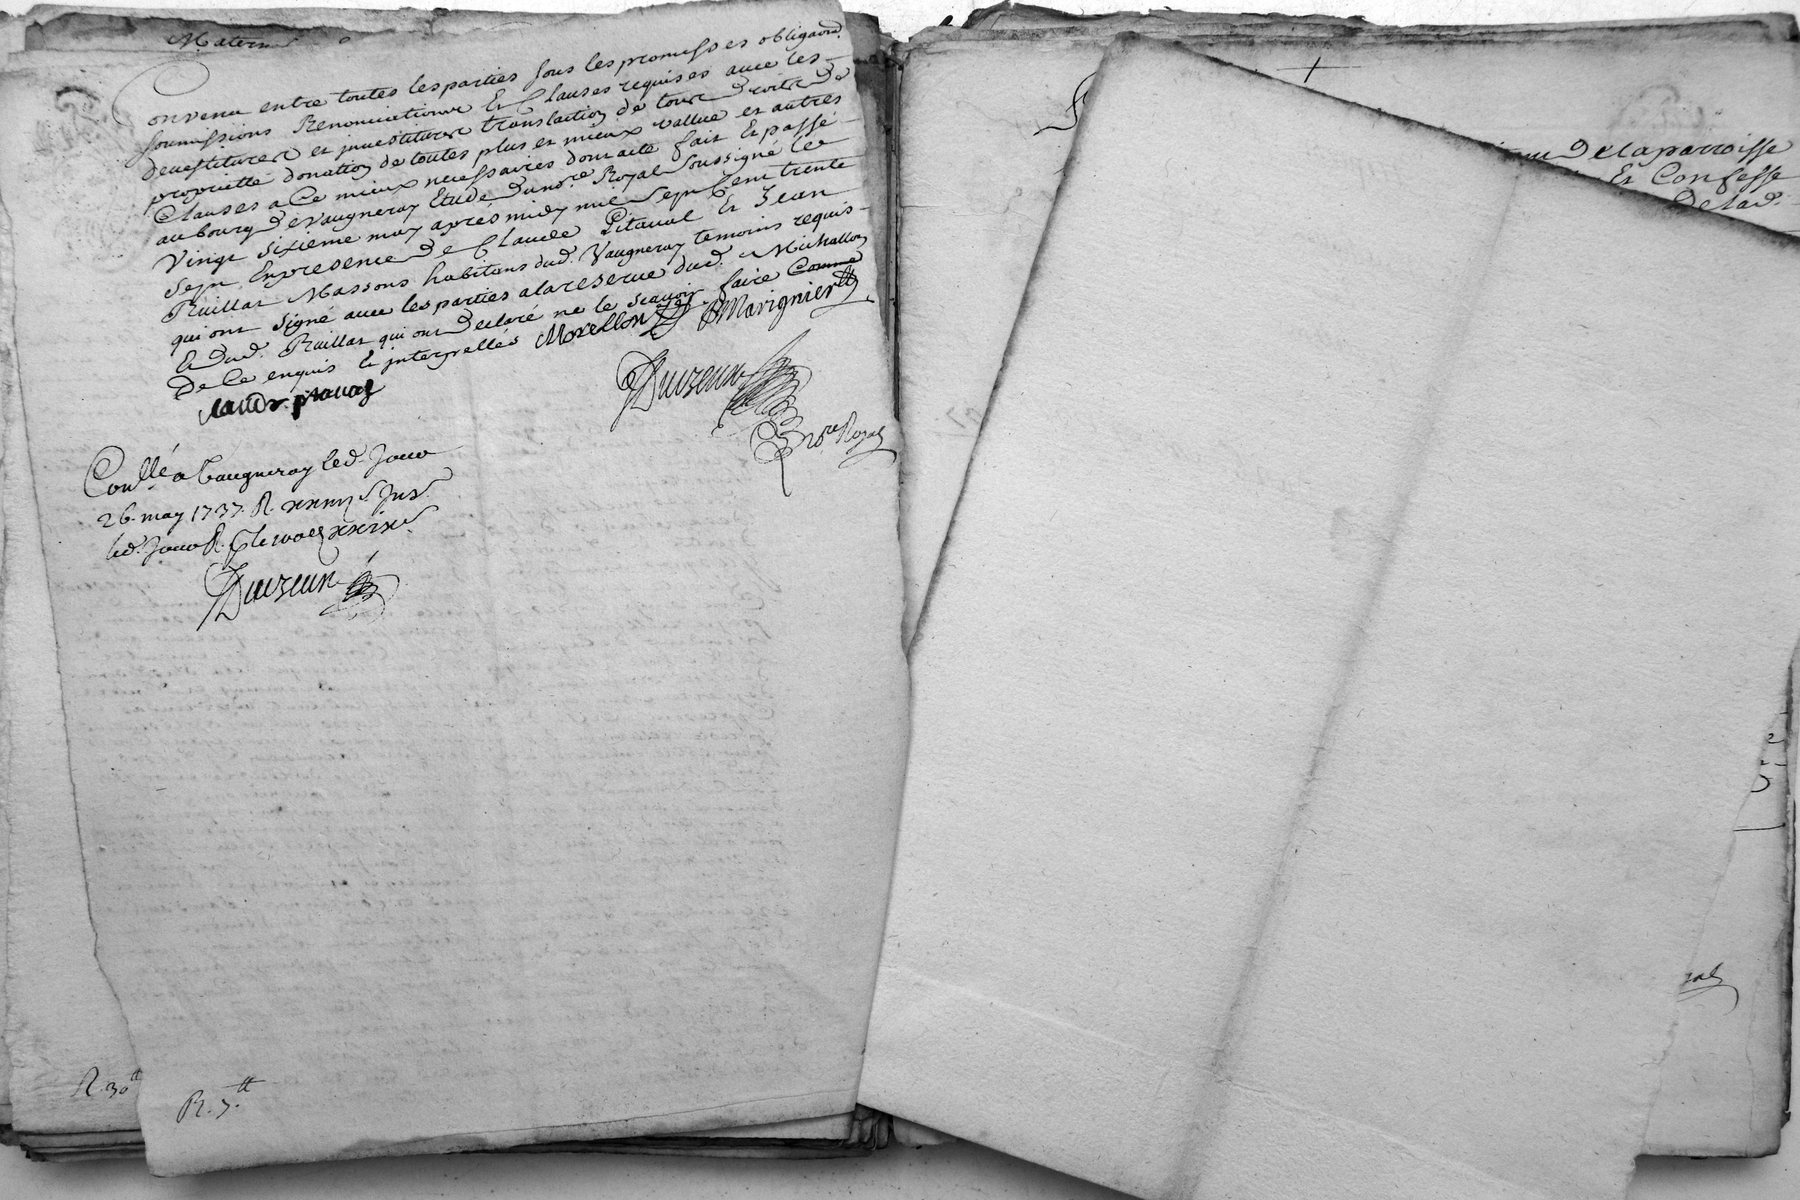 Convenu entre toutes les parties sous les promesses obliga͠ons
soumissions Renonciations Et Clauses requises avec les
devestitures et investitures translation de tous droits de
proprietté donation de toutes plus et mieux vallue et autres
Clauses a Ce mieux necessaires dont acte fait Et passé
au bourg de Vaugneray Etude du no.re Royal Soussigné le
Vingt Sixieme may après midy mil Sept Cent trente
Sept En presence de Claude Pitaval Et Jean
Ruillat Massons habitans dud. Vaugneray temoins requis
qui ont signé avec les parties a la reserve dud. Michallon
Et dud. Ruillat qui ont declaré ne le scavoir faire Comme
de Ce enquis Et interpellés Morellon BMarignier
claude pitaval
Duizeun
no.re Royal
Con.llé a Vaugneray led. Jour
26. may 1737. R.
led. Jour R.
Duizeun
R. 30.tt
R. 3.tt
de la parroisse
Et Confesse
de lad.